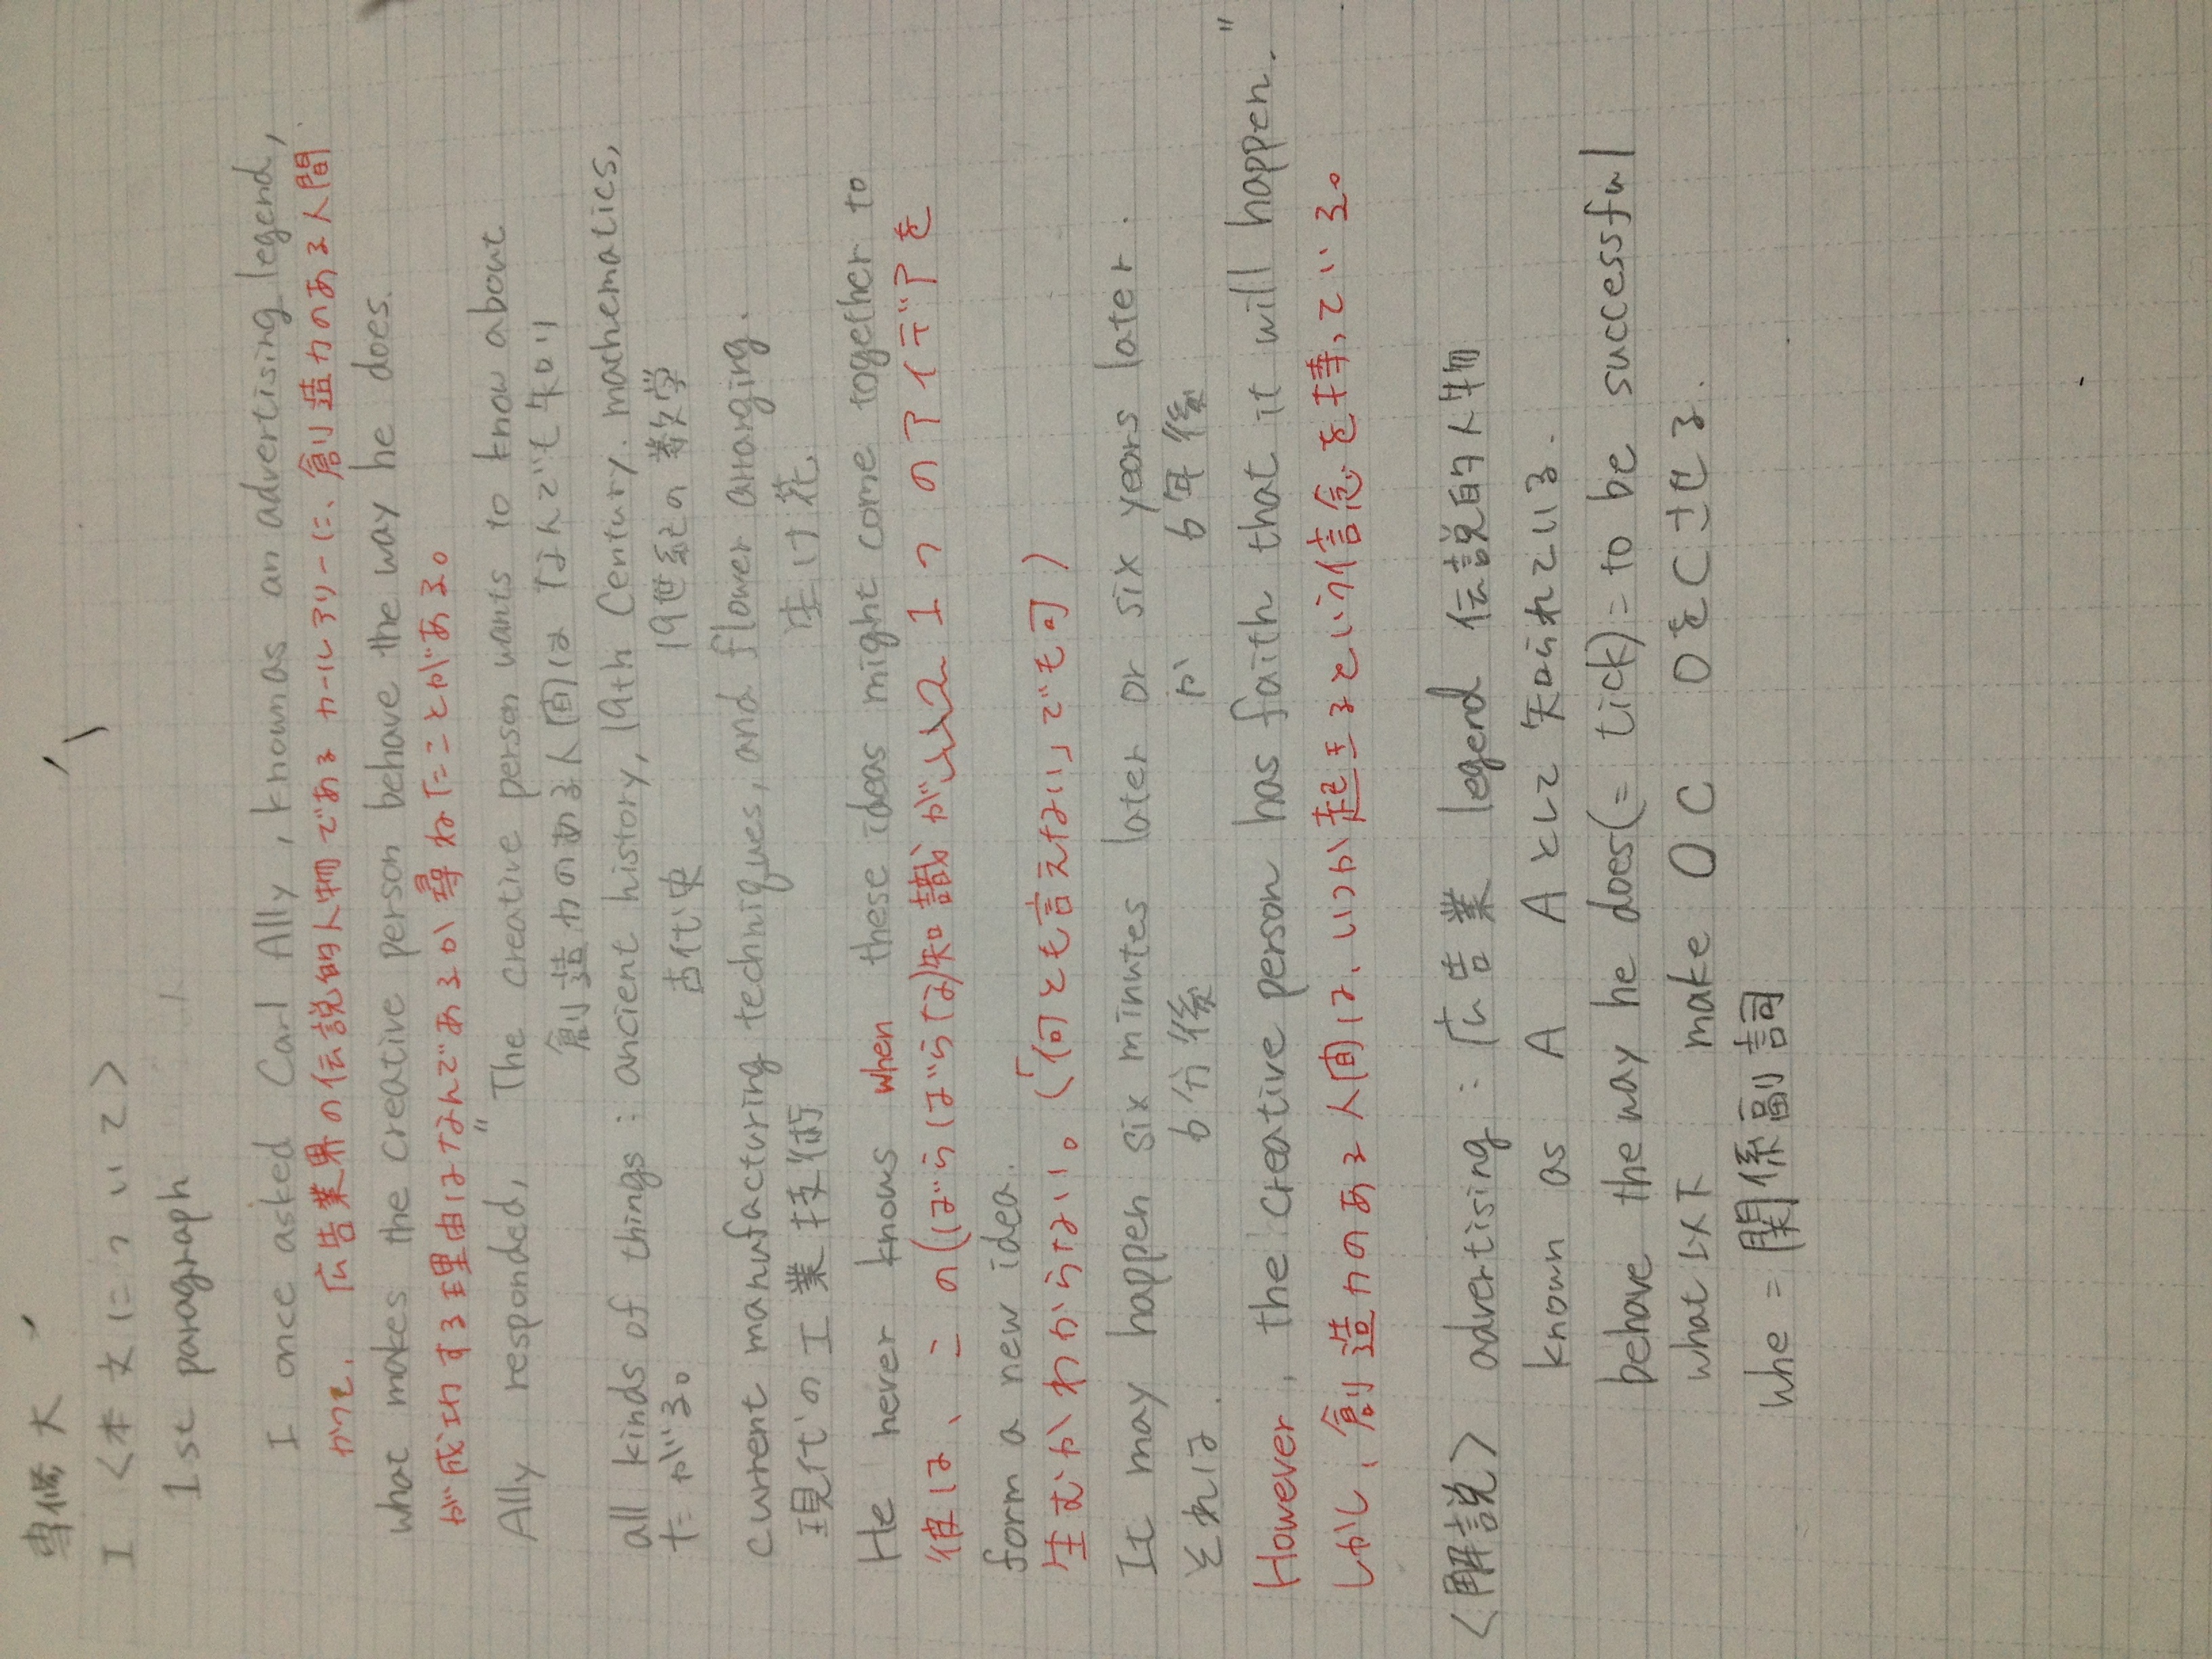 専修大
I <本文について>
1st paragraph
I once asked Carl Ally, known as an advertising legend,
かつて、広告業界の伝説的人物である カールアリーに、創造力のある人間
what makes the creative person behave the way he does.
が成功する理由はなんであるか尋ねたことがある。
Ally responded, "The creative person wants to know about
創造力のある人間は なんでも知り
all kinds of things : ancient history, 19th Century mathematics,
たがる。 古代史 19世紀の数学
current manufacturing techniques, and flower arranging.
現代の工業技術 生け花
He never knows when these ideas might come together to
彼は、この(ばらばらな)知識が 1つのアイデアを
form a new idea.
生むかわからない。(「何とも言えない」でも可)
It may happen six minutes later or six years later.
それは 6分後 か 6年後
However, the creative person has faith that it will happen."
しかし、創造力のある人間は、いつか起きるという信念を持っている。
<解説> advertising : 広告業 legend 伝説的人物
known as A Aとして知られている.
behave the way he does(= tick)= to be successful
what以下 make O C OをCさせる.
whe = 関係副詞